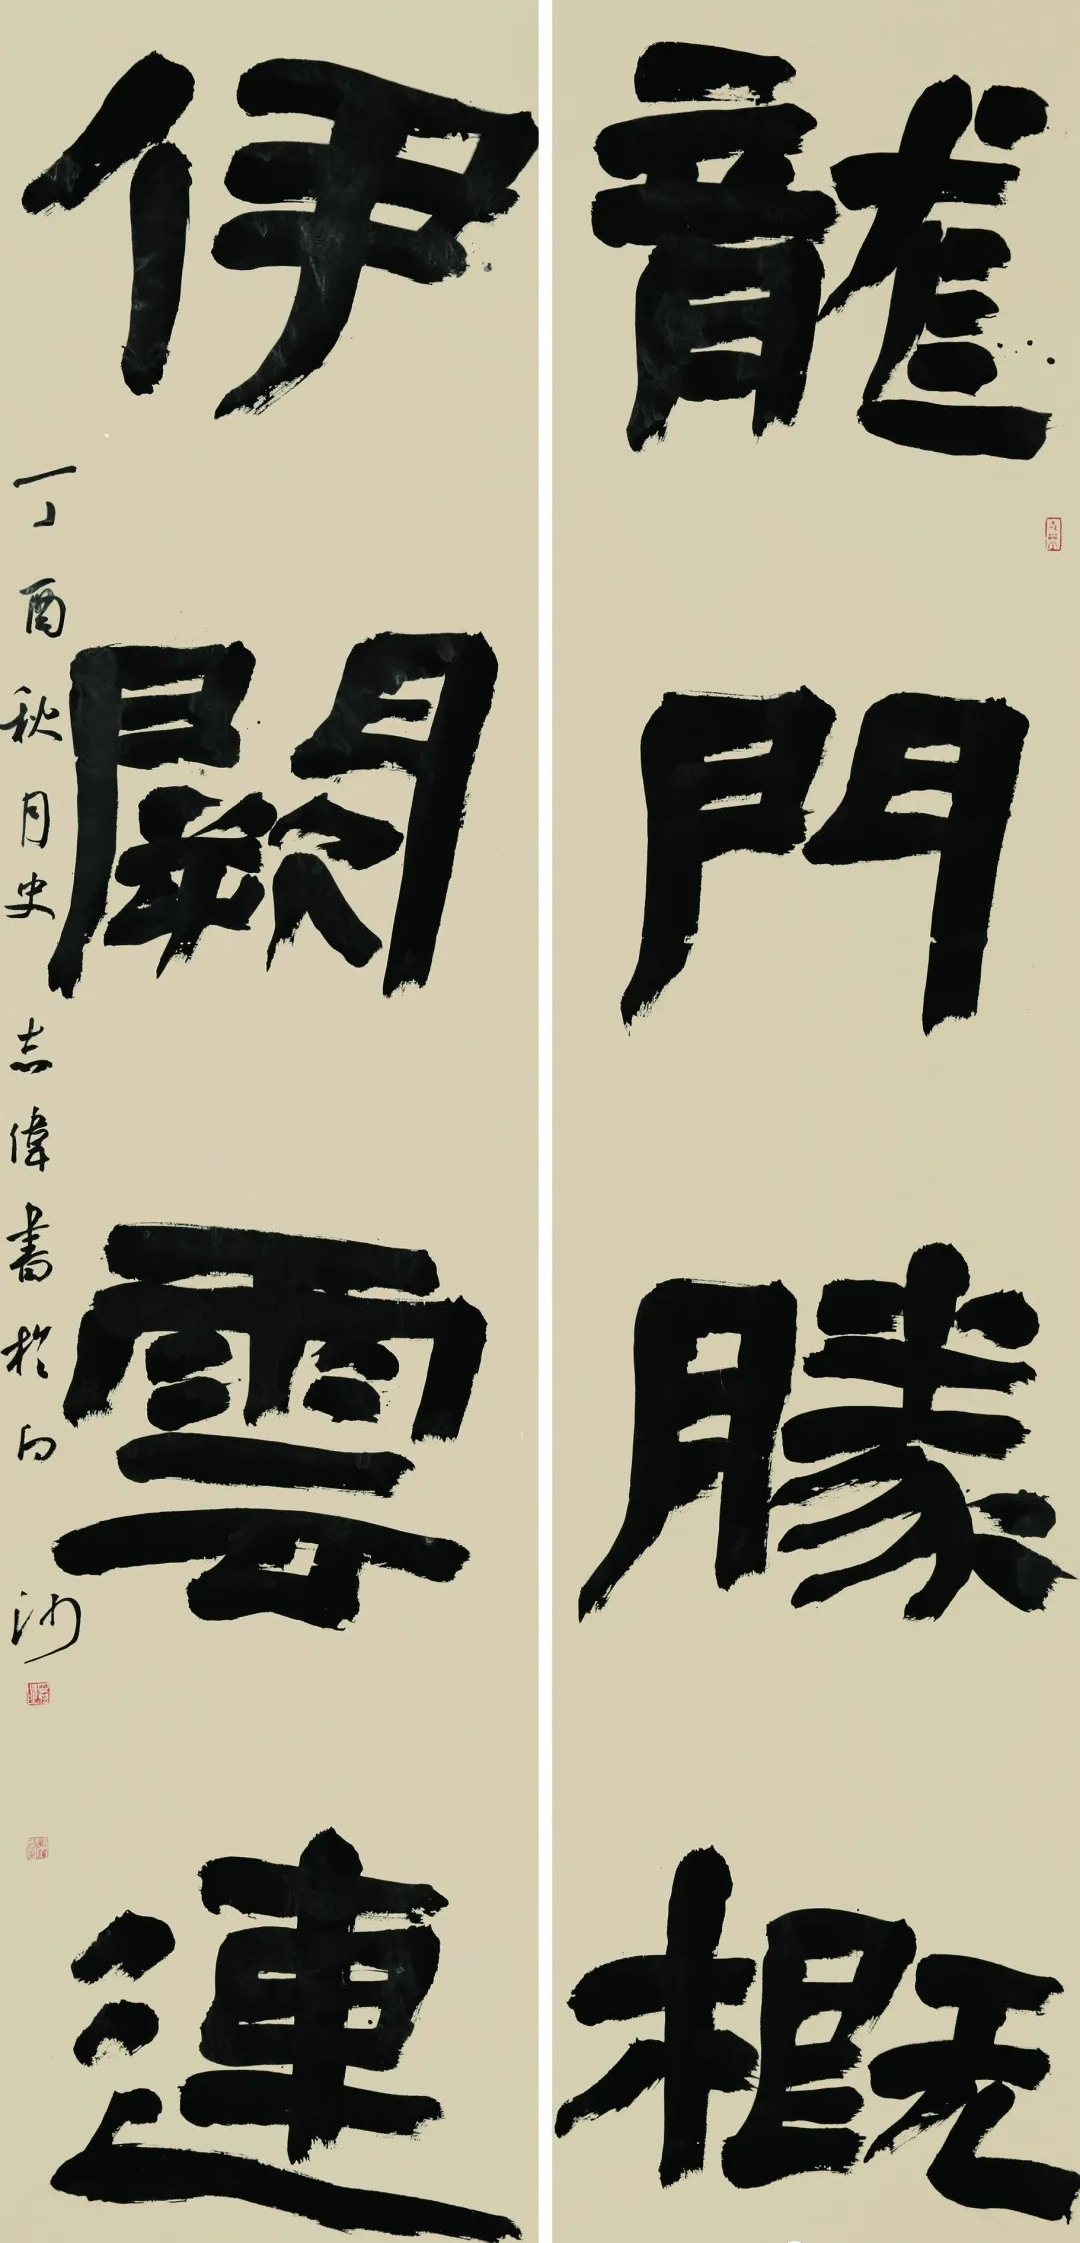 龍門勝概
伊闕雲連
丁酉秋月史志偉書於白沙